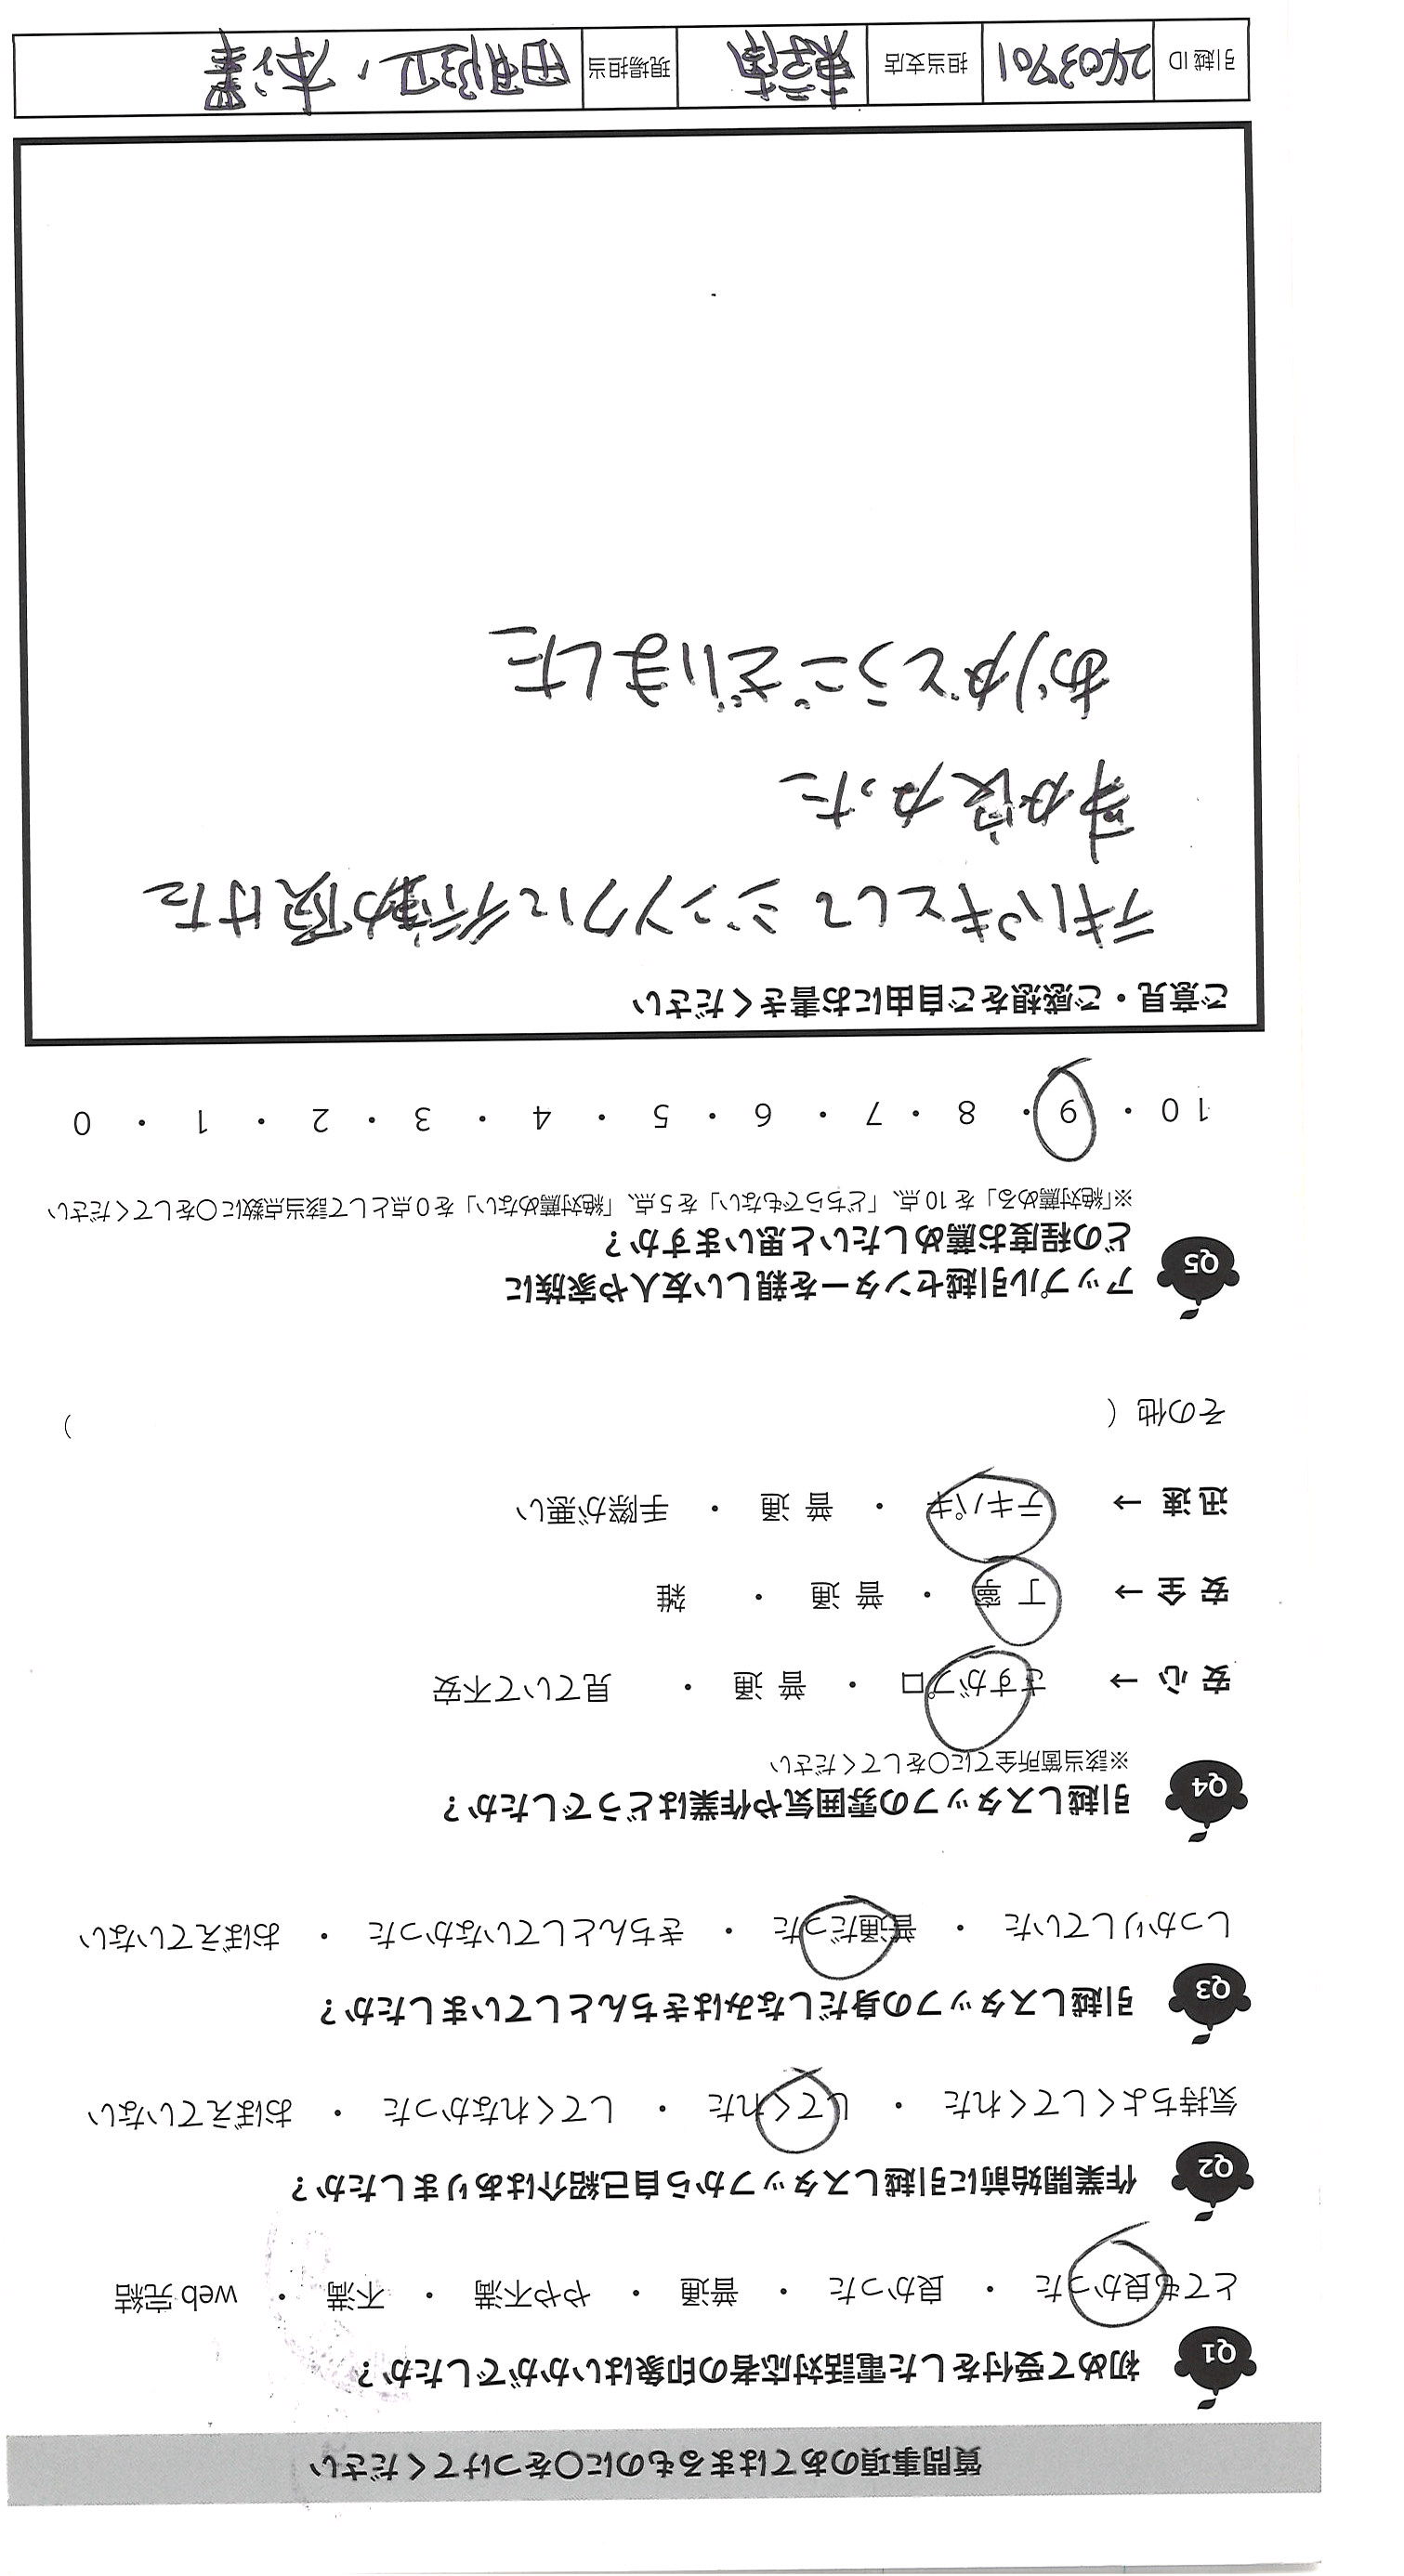 質問事項のあてはまるものに〇をつけてください
Q1 初めて受付をした電話対応者の印象はいかがでしたか？
とても良かった ・ 良かった ・ 普通 ・ やや不満 ・ 不満 ・ web 完結
Q2 作業開始前に引越しスタッフから自己紹介はありましたか？
気持ちよくしてくれた ・ してくれた ・ してくれなかった ・ おぼえていない
Q3 引越しスタッフの身だしなみはきちんとしていましたか？
しっかりしていた ・ 普通だった ・ きちんとしていなかった ・ おぼえていない
Q4 引越しスタッフの雰囲気や作業はどうでしたか？
※該当箇所全てに〇をしてください
安 心 → さすがプロ ・ 普 通 ・ 見ていて不安
安 全 → 丁 寧 ・ 普 通 ・ 雑
迅 速 → テキパキ ・ 普 通 ・ 手際が悪い
その他（ ）
Q5 アップル引越センターを親しい友人や家族に
どの程度お薦めしたいと思いますか？
※「絶対薦める」を 10 点、「どちらでもない」を 5 点、「絶対薦めない」を 0 点として該当点数に〇をしてください
10 ・ 9 ・ 8 ・ 7 ・ 6 ・ 5 ・ 4 ・ 3 ・ 2 ・ 1 ・ 0
ご意見・ご感想をご自由にお書きください
テキパキとして ジンソクに行動頂けた
事が良かった
ありがとうございました
引越 ID 2403701 担当支店 東京南 現場担当